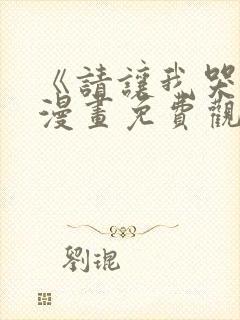 《請讓我哭
漫畫免費觀
劉琨